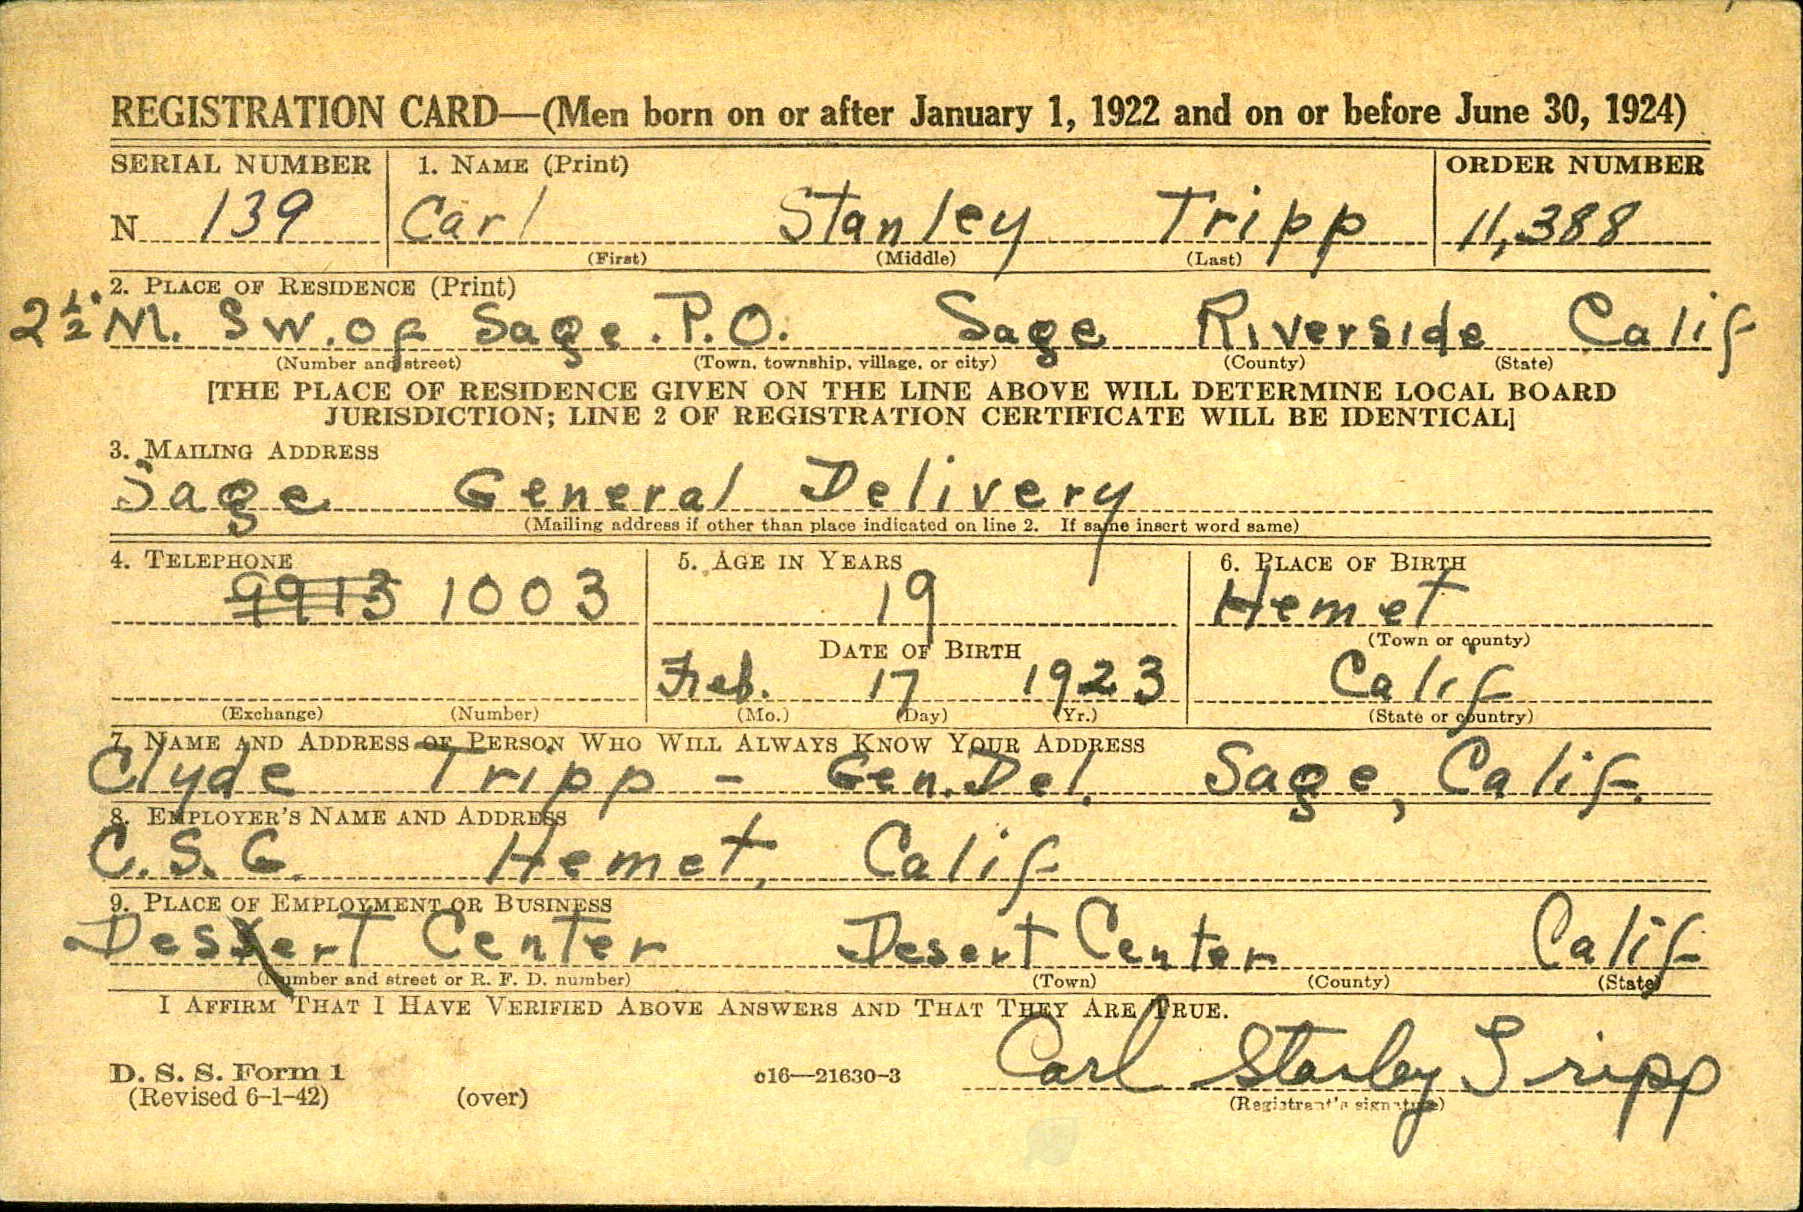 REGISTRATION CARD—(Men born on or after January 1, 1922 and on or before June 30, 1924)
SERIAL NUMBER 1. NAME (Print) ORDER NUMBER
N 139 Carl Stanley Tripp 11,388
(First) (Middle) (Last)
2. PLACE OF RESIDENCE (Print)
2½ M. SW. of Sage. P.O. Sage Riverside Calif
(Number and street) (Town, township, village, or city) (County) (State)
[THE PLACE OF RESIDENCE GIVEN ON THE LINE ABOVE WILL DETERMINE LOCAL BOARD
JURISDICTION; LINE 2 OF REGISTRATION CERTIFICATE WILL BE IDENTICAL]
3. MAILING ADDRESS
Sage General Delivery
(Mailing address if other than place indicated on line 2. If same insert word same)
4. TELEPHONE 5. AGE IN YEARS 6. PLACE OF BIRTH
9913 1003 19 Hemet
(Town or county)
DATE OF BIRTH
Feb. 17 1923 Calif
(Exchange) (Number) (Mo.) (Day) (Yr.) (State or country)
7. NAME AND ADDRESS OF PERSON WHO WILL ALWAYS KNOW YOUR ADDRESS
Clyde Tripp - Gen. Del. Sage, Calif.
8. EMPLOYER'S NAME AND ADDRESS
C. S. G. Hemet, Calif
9. PLACE OF EMPLOYMENT OR BUSINESS
Dessert Center Desert Center Calif
(Number and street or R. F. D. number) (Town) (County) (State)
I AFFIRM THAT I HAVE VERIFIED ABOVE ANSWERS AND THAT THEY ARE TRUE.
Carl Stanley Tripp
D. S. S. Form 1
(Revised 6-1-42) (over) c16—21630-3 (Registrant's signature)